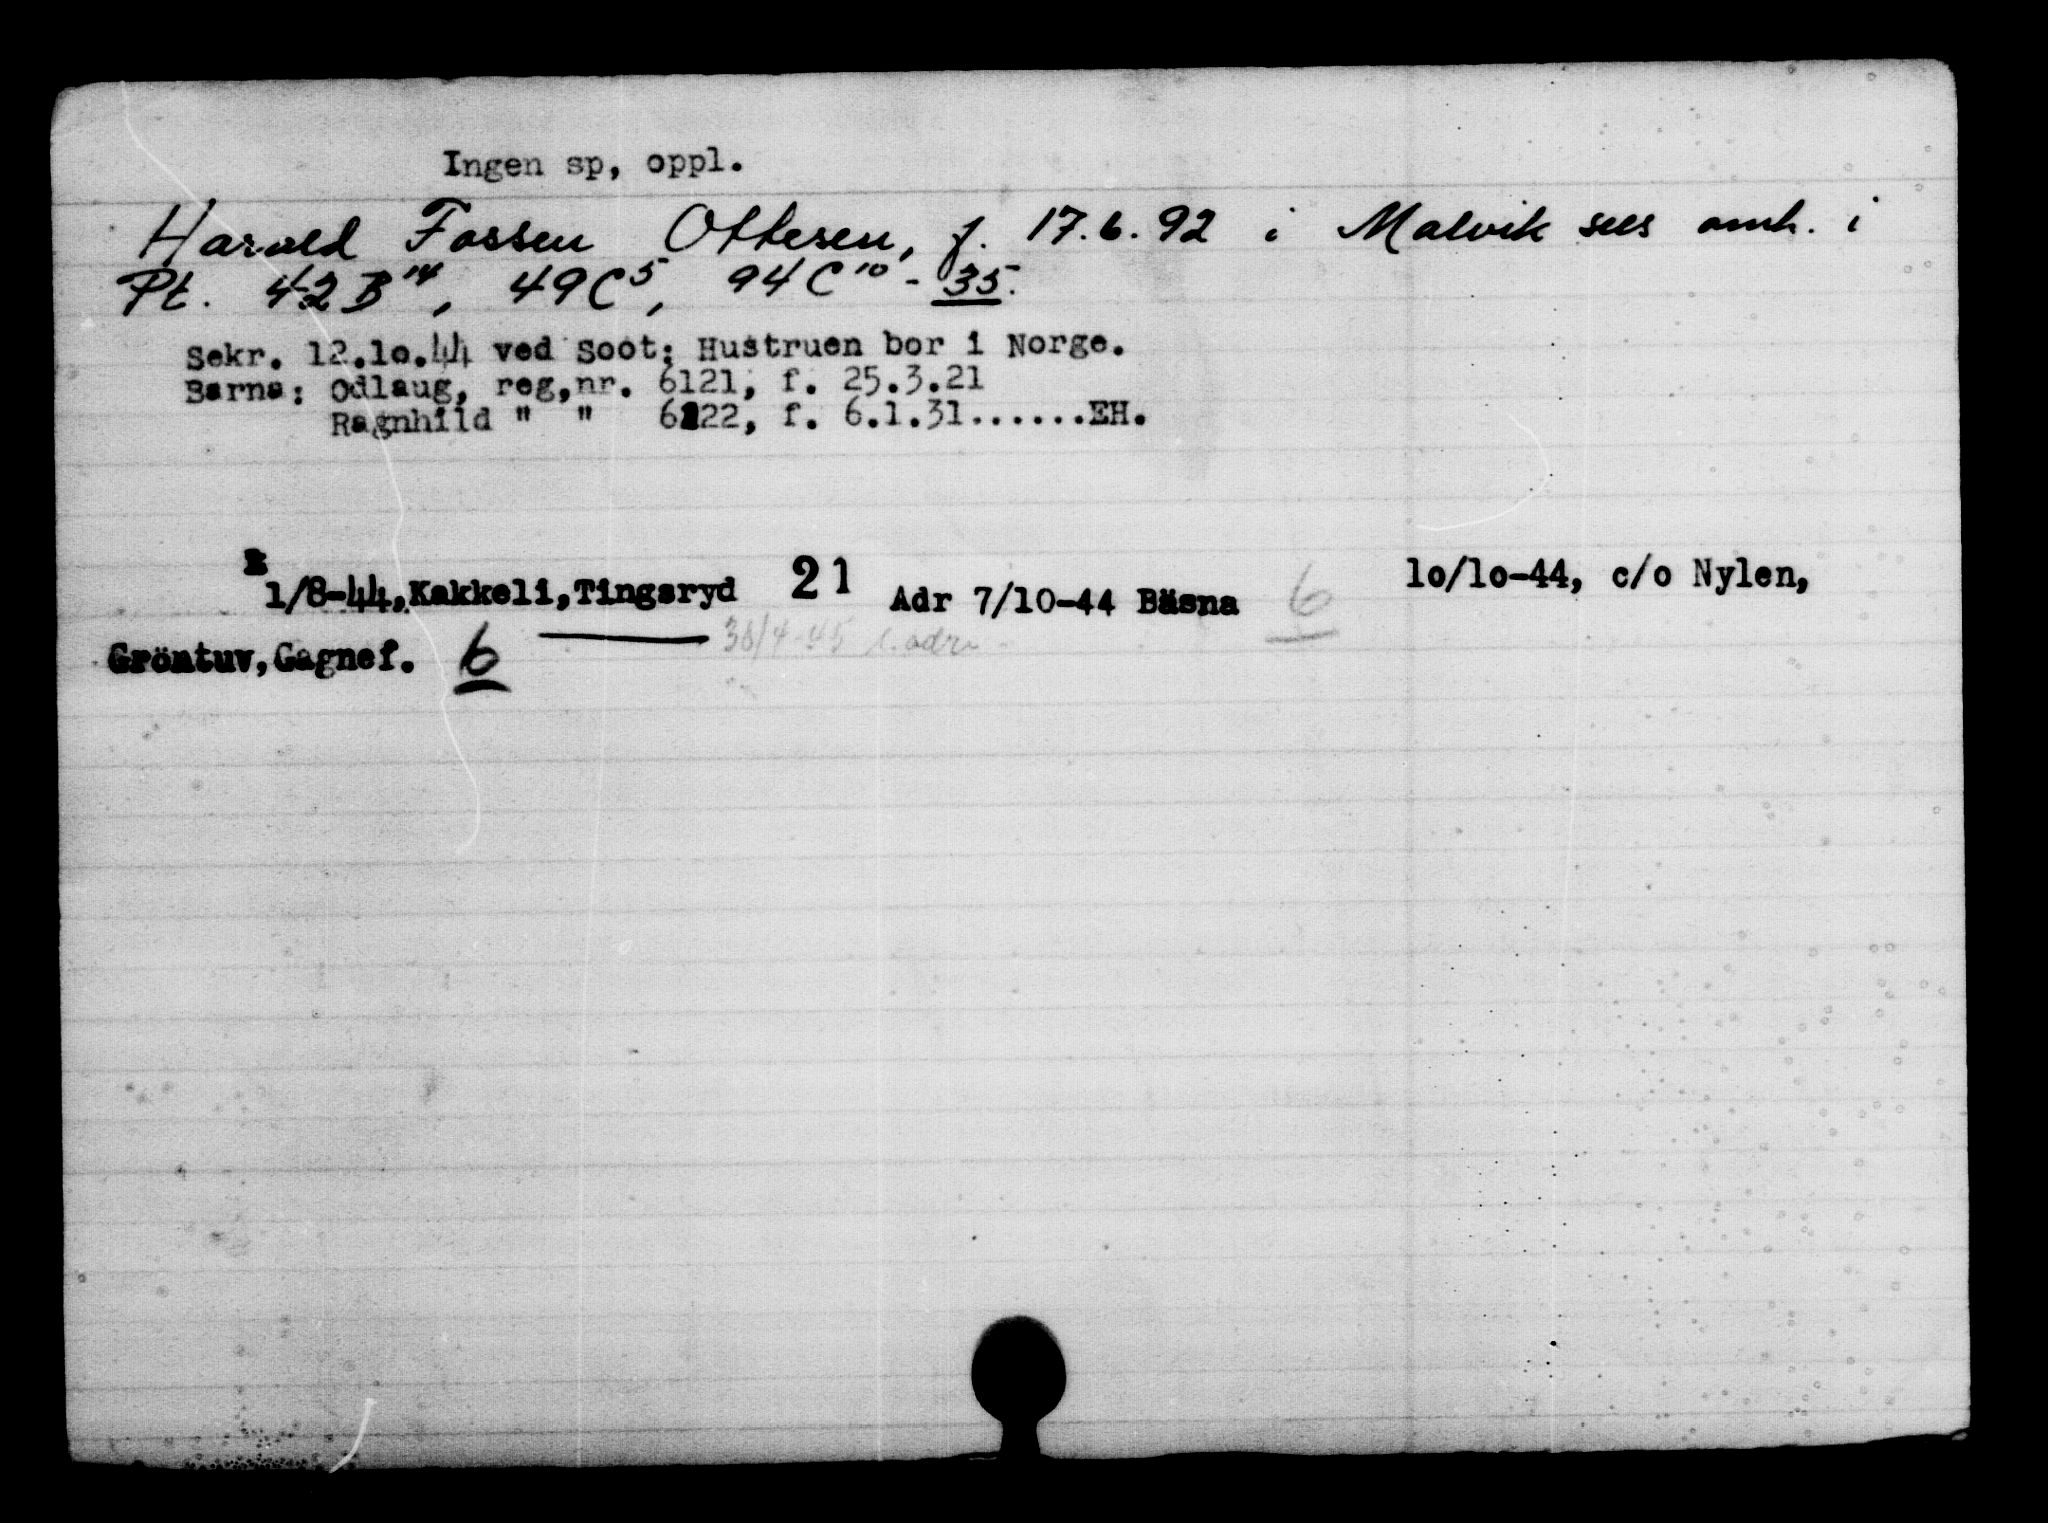 Ingen sp, oppl.
Harald Fossen Ottesen, f. 17.6.92 i Malvik sees omh. i
Pt. 42B¹⁴, 49C⁵, 94C¹⁰ - 35.
Sekr. 12.lo.44 ved Soot: Hustruen bor i Norge.
Barna: Odlaug, reg,nr. 6121, f. 25.3.21
Ragnhild " " 6122, f. 6.1.31......EH.
1/8-44,Kakkeli,Tingsryd 21 Adr 7/10-44 Bäsna 6 lo/lo-44, c/o Nylen,
30/4-45 s. adr.
Gröntuv,Gagnef. 6